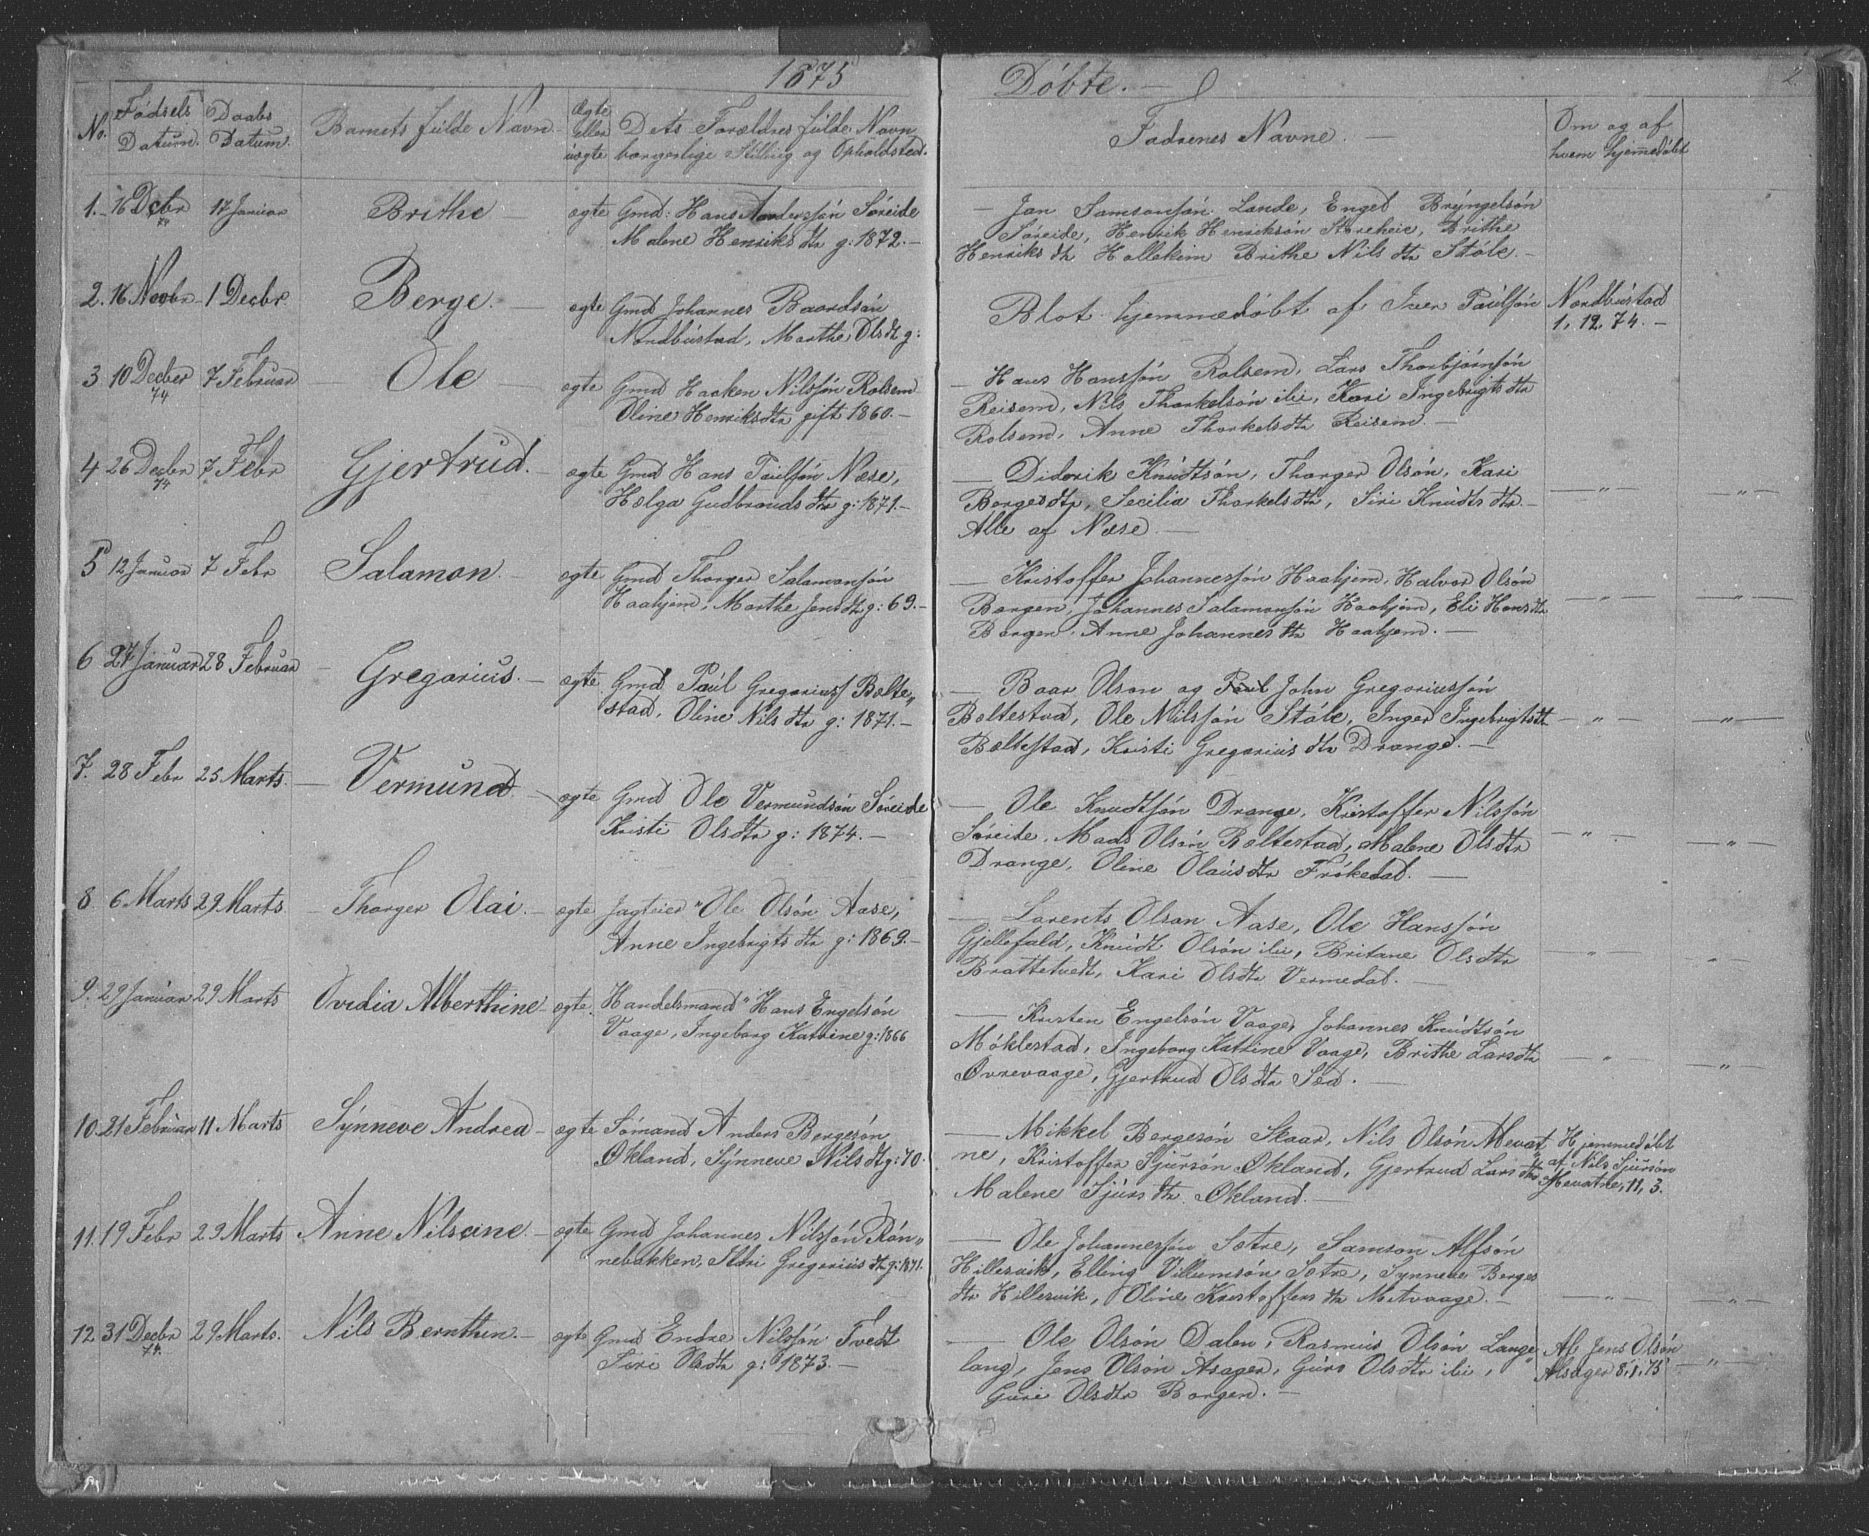 1875 Döbte. 2
No. Fødsels Datum. Daabs Datum. Barnets fulde Navn Ægte eller uægte Dets Forældres fulde Navn borgerlige Stilling og Opholdsted. Faddernes Navne. Om og af hvem hjemmedöbt
1. 16 Decbr 74 17 Januar Brithe ægte Gmd: Hans Andersjön Söreide
Malene Henriksdtr g: 1872.
Jan Samsonsjön Lande, Engel Bryngelsön
Söreide, Henrik Henriksön Storeheie, Brithe
Henriksdtr Hollekim Brithe Nilsdtr Stöle.
2. 16 Novbr 1 Decbr. Berge. ægte Gmd Johannes Baardsön
Nordbustad, Marthe Olsdtr g:
Blot hjemmedöbt af Iver Paulsjön Nordbustad
1, 12, 74.
3 10 Decber 74 7 Februar Ole ægte Gmd Haaken Nilsjön Rolsem
Oline Henriksdtr gift 1860.
Hans Hansjön Rolsem, Lars Thorbjörnsjön
Reisem, Nils Thorkelsön ibi, Kari Ingebrigtsdtr
Rolsem, Anne Thorkelsdtr Reisem.
4 26 Decbr 74 7 Febr Gjertrud. ægte Gmd Hans Paulsjön Næse,
Hælga Gudbrandsdtr g: 1871.
Diderik Knudtsön, Thorger Olsön, Kari
Borgesdtr, Secilia Thorkelsdtr, Siri Knudtsdtr.
Alle af Næse. — „ — — „ —
5 12 Januar 7 Febr Salamon. ægte Gmd Thorger Salamonsjön
Haahjem, Marthe Jensdtr g: 69.
Kristoffer Johannesjön Haahjem, Halvor Olsön
Borgen, Johannes Salamonsjön Haahjem, Eli Hansdtr
Borgen, Anne Johannesdtr Haahjem. — „ — — „ —
6 27 Januar 28 Februar Gregorius. ægte Gmd Paul Gregorius Bolte„
stad, Oline Nilsdtr g: 1871.
Baar Olson og Paul John Gregoriusjön
Boltestad, Ole Nilsjön Stöle, Inger Ingebrigtsdtr
Boltestad, Kristi Gregoriusdtr Drange. — „ — — „ —
7. 28 Febr 25 Marts. Vermund ægte Gmd Ole Vermundsön Söreide
Kristi Olsdtr g: 1874.
Ole Knudtsjön Drange, Kristoffer Nilsjön
Söreide, Mads Olsön Boltestad, Malene Olsdtr
Drange, Oline Olausdtr Frökedal. — „ — — „ —
8 6 Marts 29 Marts Thorger Olai. ægte Jagteier Ole Olsön Aase,
Anne Ingebrigtsdtr g: 1869.
Lorents Olson Aase, Ole Hansjön
Gjellefald, Knudt Olsön ibi, Britane Olsdtr
Brattetvedt, Kari Olsdtr Vermedal. — „ — — „ —
9. 29 Januar 29 Marts Ovidia Alberthine ægte. Handelsmand Hans Engelsön
Vaage, Ingeborg Katrine g: 1866
Kristen Engelsön Vaage, Johannes Knudtsön
Möklestad, Ingeborg Katrine Vaage, Brithe Larsdtr
Övrevaage, Gjertrud Olsdtr Sæd. — „ — — „ —
10. 21 Februar 11 Marts Synneve Andrea ægte Sömand Anders Bergesön
Økland, Synneve Nilsdtr g: 70.
Mikkel Bergesön Skaar, Nils Olsön Mevat„
ne, Kristoffer Sjursön Økland, Gjertrud Larsdtr
Malene Sjursdtr Økland. Hjemmedöbt
af Nils Sjursön
Mevatne, 11, 3.
11. 19 Febr 29 Marts Anne Nilsine ægte Gmd Johannes Nilsjön Rön„
nebakken, Siri Gregoriusdtr g: 1871.
Ole Johannesjön Sætre, Samson Alfsön
Hillesvik, Elling Villumsön Sætre, Synneve Berges
dtr Hillesvik, Oline Kristoffersdtr Mitvaage. — „ — — „ —
12 31 Decbr 74. 29 Marts. Nils Bernthin. ægte Gmd Endre Nilsjön Tvedt
Siri Olsdtr g: 1873.
Ole Olsön Dalen, Rasmus Olsön Lange„
lang, Jens Olsön Asager, Guro Olsdtr ibi,
Guri Olsdtr Borgen. Af Jens Olsön
Alsager 8, 1, 75 — „ —